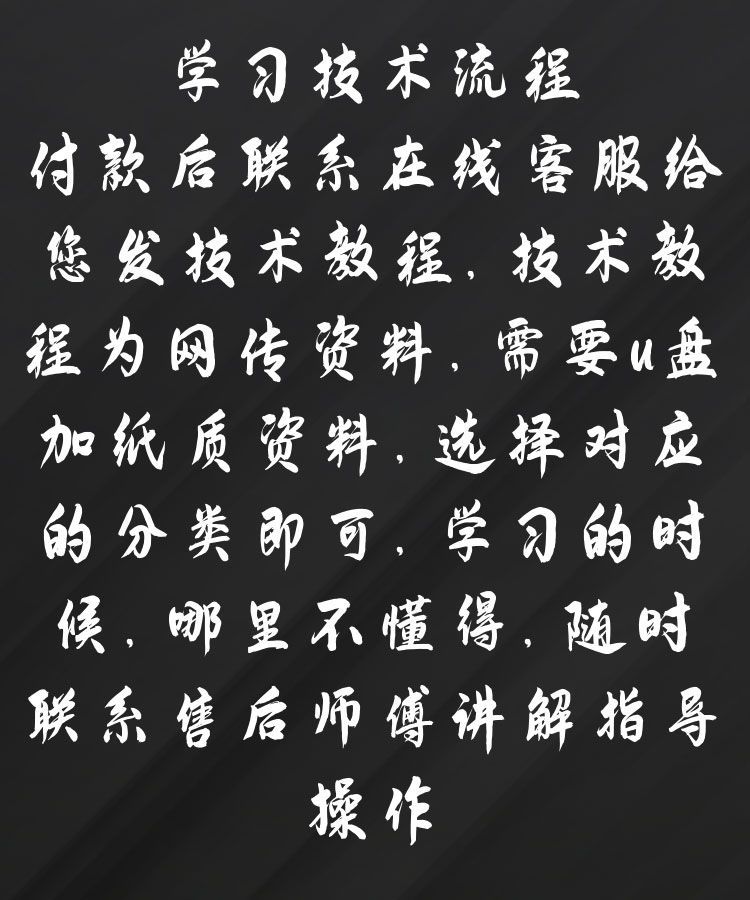 学习技术流程
付款后联系在线客服给
您发技术教程,技术教
程为网传资料,需要u盘
加纸质资料,选择对应
的分类即可,学习的时
候,哪里不懂得,随时
联系售后师傅讲解指导
操作